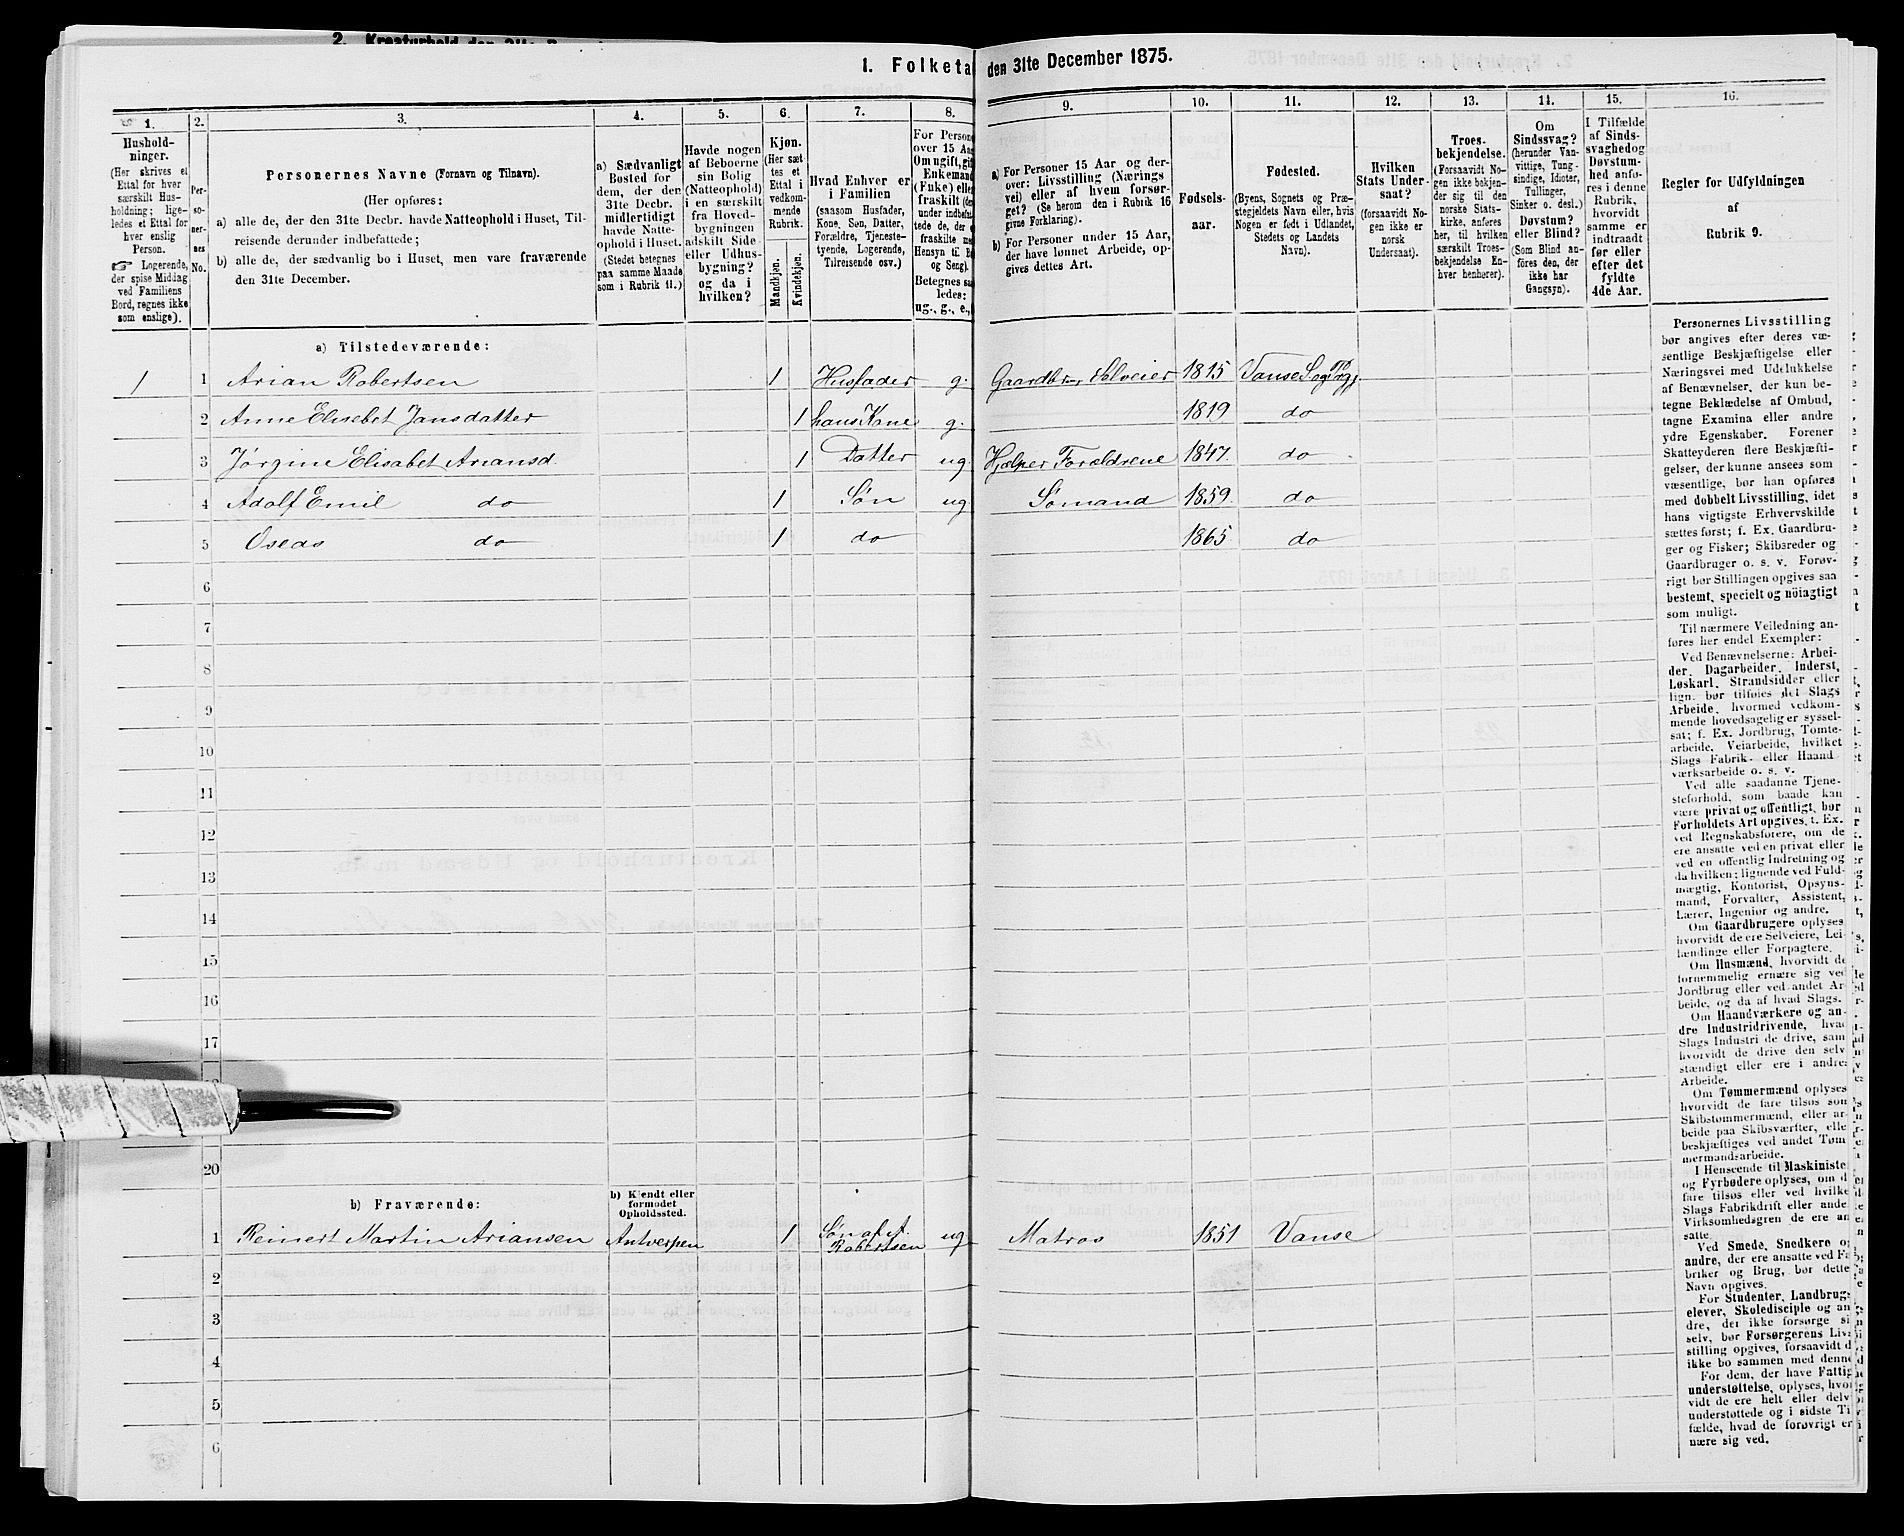 2. Kreaturhold den 31te
1. Folketa
den 31te December 1875.
1.
2.
3.
4.
5.
6.
7.
8.
9.
10.
11.
12.
13.
14.
15.
16.
Hushold-
ninger.
(Her skrives et
Ettal for hver
særskilt Hus-
holdning; lige-
ledes et Ettal for
hver enslig
Person.
☞ Logerende,
der spise Middag
ved Familiens
Bord, regnes ikke
som enslige).
Per-
so-
ner-
nes
No.
Personernes Navne (Fornavn og Tilnavn).
(Her opføres:
a) alle de, der den 31te Decbr. havde Natteophold i Huset, Til-
reisende derunder indbefattede;
b) alle de, der sædvanlig bo i Huset, men vare fraværende
den 31te December.
a) Sædvanligt
Bosted for
dem, der den
31te Decbr.
midlertidigt
havde Natte-
ophold i Huset.
(Stedet betegnes
paa samme Maade
som i Rubrik 11.)
Havde nogen
af Beboerne
sin Bolig
(Natteophold)
i en særskilt
fra Hoved-
bygningen
adskilt Side-
eller Udhus-
bygning?
og da i
hvilken?
Kjøn.
(Her sæt-
tes et
Ettal i
vedkom-
mende
Rubrik.
Mandkjøn.
Kvindekjøn.
Hvad Enhver er
i Familien
(saasom Husfader,
Kone, Søn, Datter,
Forældre, Tjeneste-
tyende, Logerende,
Tilreisende osv.)
For Persone
over 15 Aar
Om ugift, gift
Enkemand
(Fuke) eller
fraskilt (de
under indbefat
tede de, der e
fraskilte me
Hensyn til B
og Seng).
Betegnes saa
ledes:
ug., g., e.,
a) For Personer 15 Aar og der-
over: Livsstilling (Nærings
vei) eller af hvem forsør-
get? (Se herom den i Rubrik 16
givne Forklaring).
b) For Personer under 15 Aar,
der have lønnet Arbeide, op-
gives dettes Art.
Fødsels-
aar.
Fødested.
(Byens, Sognets og Præ-
stegjeldets Navn eller, hvis
Nogen er født i Udlandet,
Stedets og Landets
Navn).
Hvilken
Stats Under-
saat?
(forsaavidt No-
gen ikke er
norsk
Undersaat).
Troes-
bekjendelse.
(Forsaavidt No-
gen ikke bekjen-
der sig til den
norske Stats-
kirke, anføres
her, til hvilken
særskilt Troes-
bekjendelse En-
hver henhører).
Om
Sindssvag?
(herunder Van-
vittige, Tung-
sindige, Idioter,
Tullinger,
Sinker o. desl.)
Døvstum?
eller Blind?
(Som Blind an-
føres den, der
ikke har
Gangsyn).
I Tilfælde
af Sinds-
svaghed og
Døvstum-
hed anfø-
res i denne
Rubrik,
hvorvidt
samme er
indtraadt
før eller
efter det
fyldte
4de Aar.
Regler for Udfyldningen
af
Rubrik 9.
a) Tilstedeværende:
1 1 Arian Robertsen 1 Husfader g. Gaardbr Selveier 1815 Vanse Sog
2 Anne Elisebet Jansdatter 1 hans Kone g. 1819 do
3 Jørgine Elisabet Ariansd. 1 Datter ug. Hjælper Forældrene 1847. do
4 Adolf Emil do 1 Søn ug. Sømand 1859. do
5 Oseas do 1 do 1865 do
6
7
8
9
10
11
12
13
14
15
16
17
20
b) Fraværende:
b) Kjendt eller
formodet
Opholdssted.
1 Reinert Martin Ariansen Antverpen 1 Søn af A. Robertsen ug Matros 1851 Vanse
2
3
4
5
6
Personernes Livsstilling
bør angives efter deres væ-
sentlige Beskjæftigelse eller
Næringsvei med Udelukkelse
af Benævnelser, der kun be-
tegne Beklædelse af Ombud,
tagne Examina eller andre
ydre Egenskaber. Forener
Skatteyderen flere Beskjæfti-
gelser, der kunne ansees som
væsentlige, bør han opføres
med dobbelt Livsstilling, idet
hans vigtigste Erhvervskilde
sættes først; f. Ex. Gaardbru-
ger og Fisker; Skibsreder og
Gaardbruger o. s. v. Forøv-
rigt bør Stillingen opgives saa
bestemt, specielt og nöiagtigt
som muligt.
Til nærmere Veiledning an-
føres her endel Exempler:
Ved Benævnelserne: Arbei-
der, Dagarbeider, Inderst,
Løskarl, Strandsidder eller
lign. bør tilføies det Slags
Arbeide, hvormed vedkom-
mende hovedsagelig er syssel-
sat; f. Ex. Jordbrug, Tomte-
arbeide, Veiarbeide, hvilket
Slags Fabrik- eller Haand
værksarbeide o. s. v.
Ved alle saadanne Tjene-
steforhold, som baade kan
være privat og offentligt, bør
Forholdets Art opgives, t. Ex.
ved Regnskabsførere, om de
ere ansatte ved en privat eller
ved en offentlig Indretning og
da hvilken; lignende ved Fuld-
mægtig, Kontorist, Opsyns-
mand, Forvalter, Assistent,
Lærer, Ingeniør og andre.
Om Gaardbrugere oplyses,
hvorvidt de ere Selveiere, Lei-
lændinge eller Forpagtere.
Om Husmænd, hvorvidt de
fornemmelig ernære sig ved
Jordbrug eller ved andet Ar
beide, og da af hvad Slags.
Om Haandværkere og an-
dre Industridrivende, hvad
Slags Industri de drive, sam
hvorvidt de drive den selv
stændigt eller ere i andres
Arbeide.
Om Tømmermænd oplyses
hvorvidt de fare tilsøs som
Skibstømmermænd, eller ar-
beide paa Skibsværfter, elle
beskjæftiges ved andet Tøm
mermandsarbeide.
I Henseende til Maskiniste
og Fyrbødere oplyses, om d
fare tilsøs eller ved hvilke
Slags Fabrikdrift eller andet
Virksomhedsgren de ere an
satte.
Ved Smede, Snedkere o
andre, der ere ansatte ved Fa
briker og Brug, bør dette
Navn opgives.
For Studenter, Landbrug-
elever, Skoledisciple og an
dre, der ikke forsørge si
selv, bør Forsørgerens Liv
stilling opgives, forsaavidt d
ikke bo sammen med denne
For dem, der have Fattig
understøttelse, oplyses, hvor
vidt de ere helt eller delv
understøttede og i sidste Ti
fælde, hvad de forøvrigt er
nære sig ved.